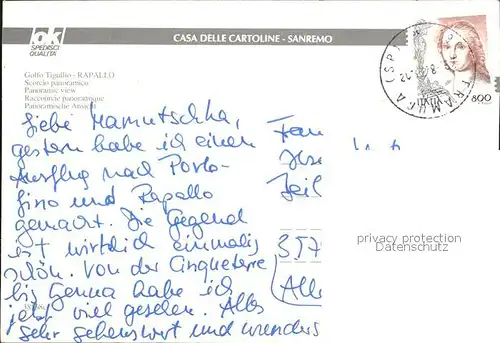 ok
SPEDISCI
QUALITA'
CASA DELLE CARTOLINE - SANREMO
Golfo Tigullio - RAPALLO
Scorcio panoramico
Panoramic view
Raccourcie panoramique
Panoramische Ansicht
800
Liebe Mamutschka,
gestern habe ich einen
Ausflug nach Porto-
fino und Rapallo
gemacht. Die Gegend
ist wirklich einmalig
schön. Von der Cinqueterre
bis Genua habe ich
jetzt viel gesehen. Alles
sehr sehenswert und wunders
Frau
Zeil
357
(Alle
privacy protection
Oldthing.com